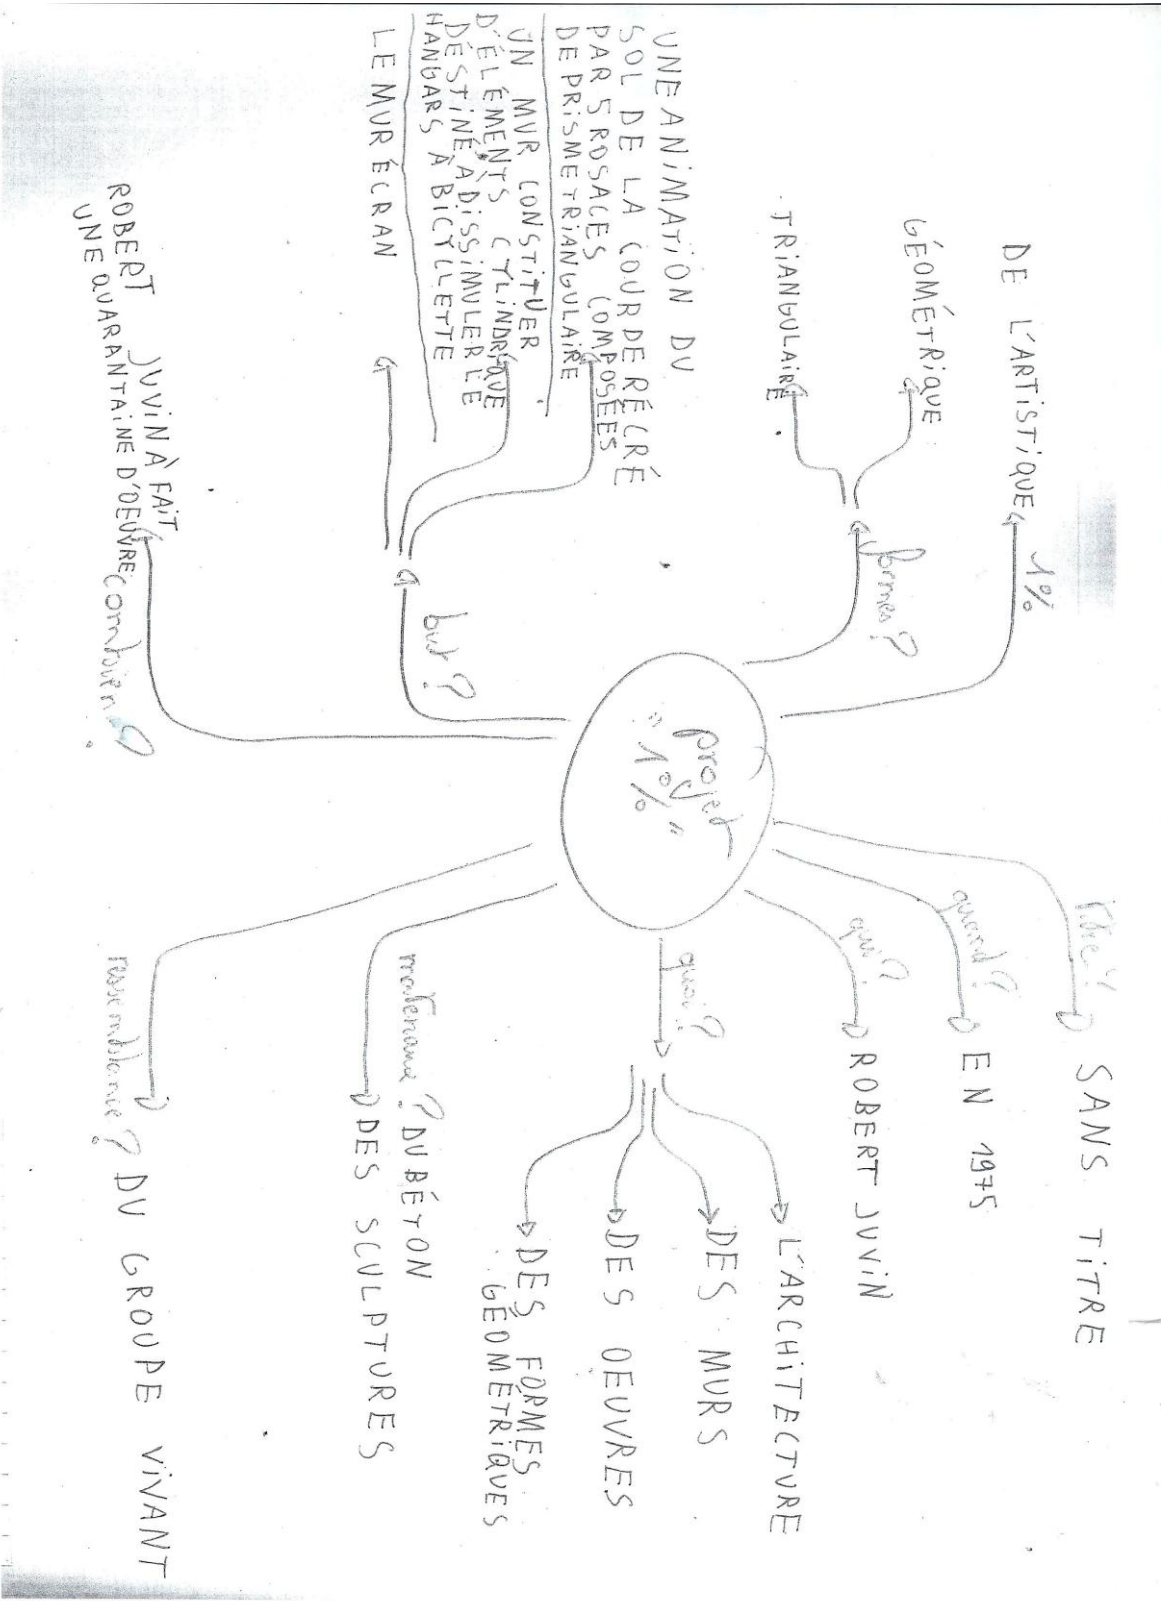 projet
"1%"
titre ?
SANS TITRE
quand ?
EN 1975
qui ?
ROBERT JUVIN
quoi ?
L'ARCHITECTURE
DES MURS
DES OEUVRES
DES FORMES
GÉOMÉTRIQUES
DU BÉTON
DES SCULPTURES
ressemblance ?
DU GROUPE VIVANT
1%
DE L'ARTISTIQUE
formes ?
GÉOMÉTRIQUE
TRIANGULAIRE
but ?
UNE ANIMATION DU
SOL DE LA COUR DE RÉCRÉ
PAR 5 ROSACES COMPOSÉES
DE PRISME TRIANGULAIRE
UN MUR CONSTITUER
D'ÉLÉMENTS CYLINDRIQUE
DESTINÉ À DISSIMULER LE
HANGARS À BICYCLETTE
LE MUR ÉCRAN
combien ?
ROBERT JUVIN À FAIT
UNE QUARANTAINE D'OEUVRE